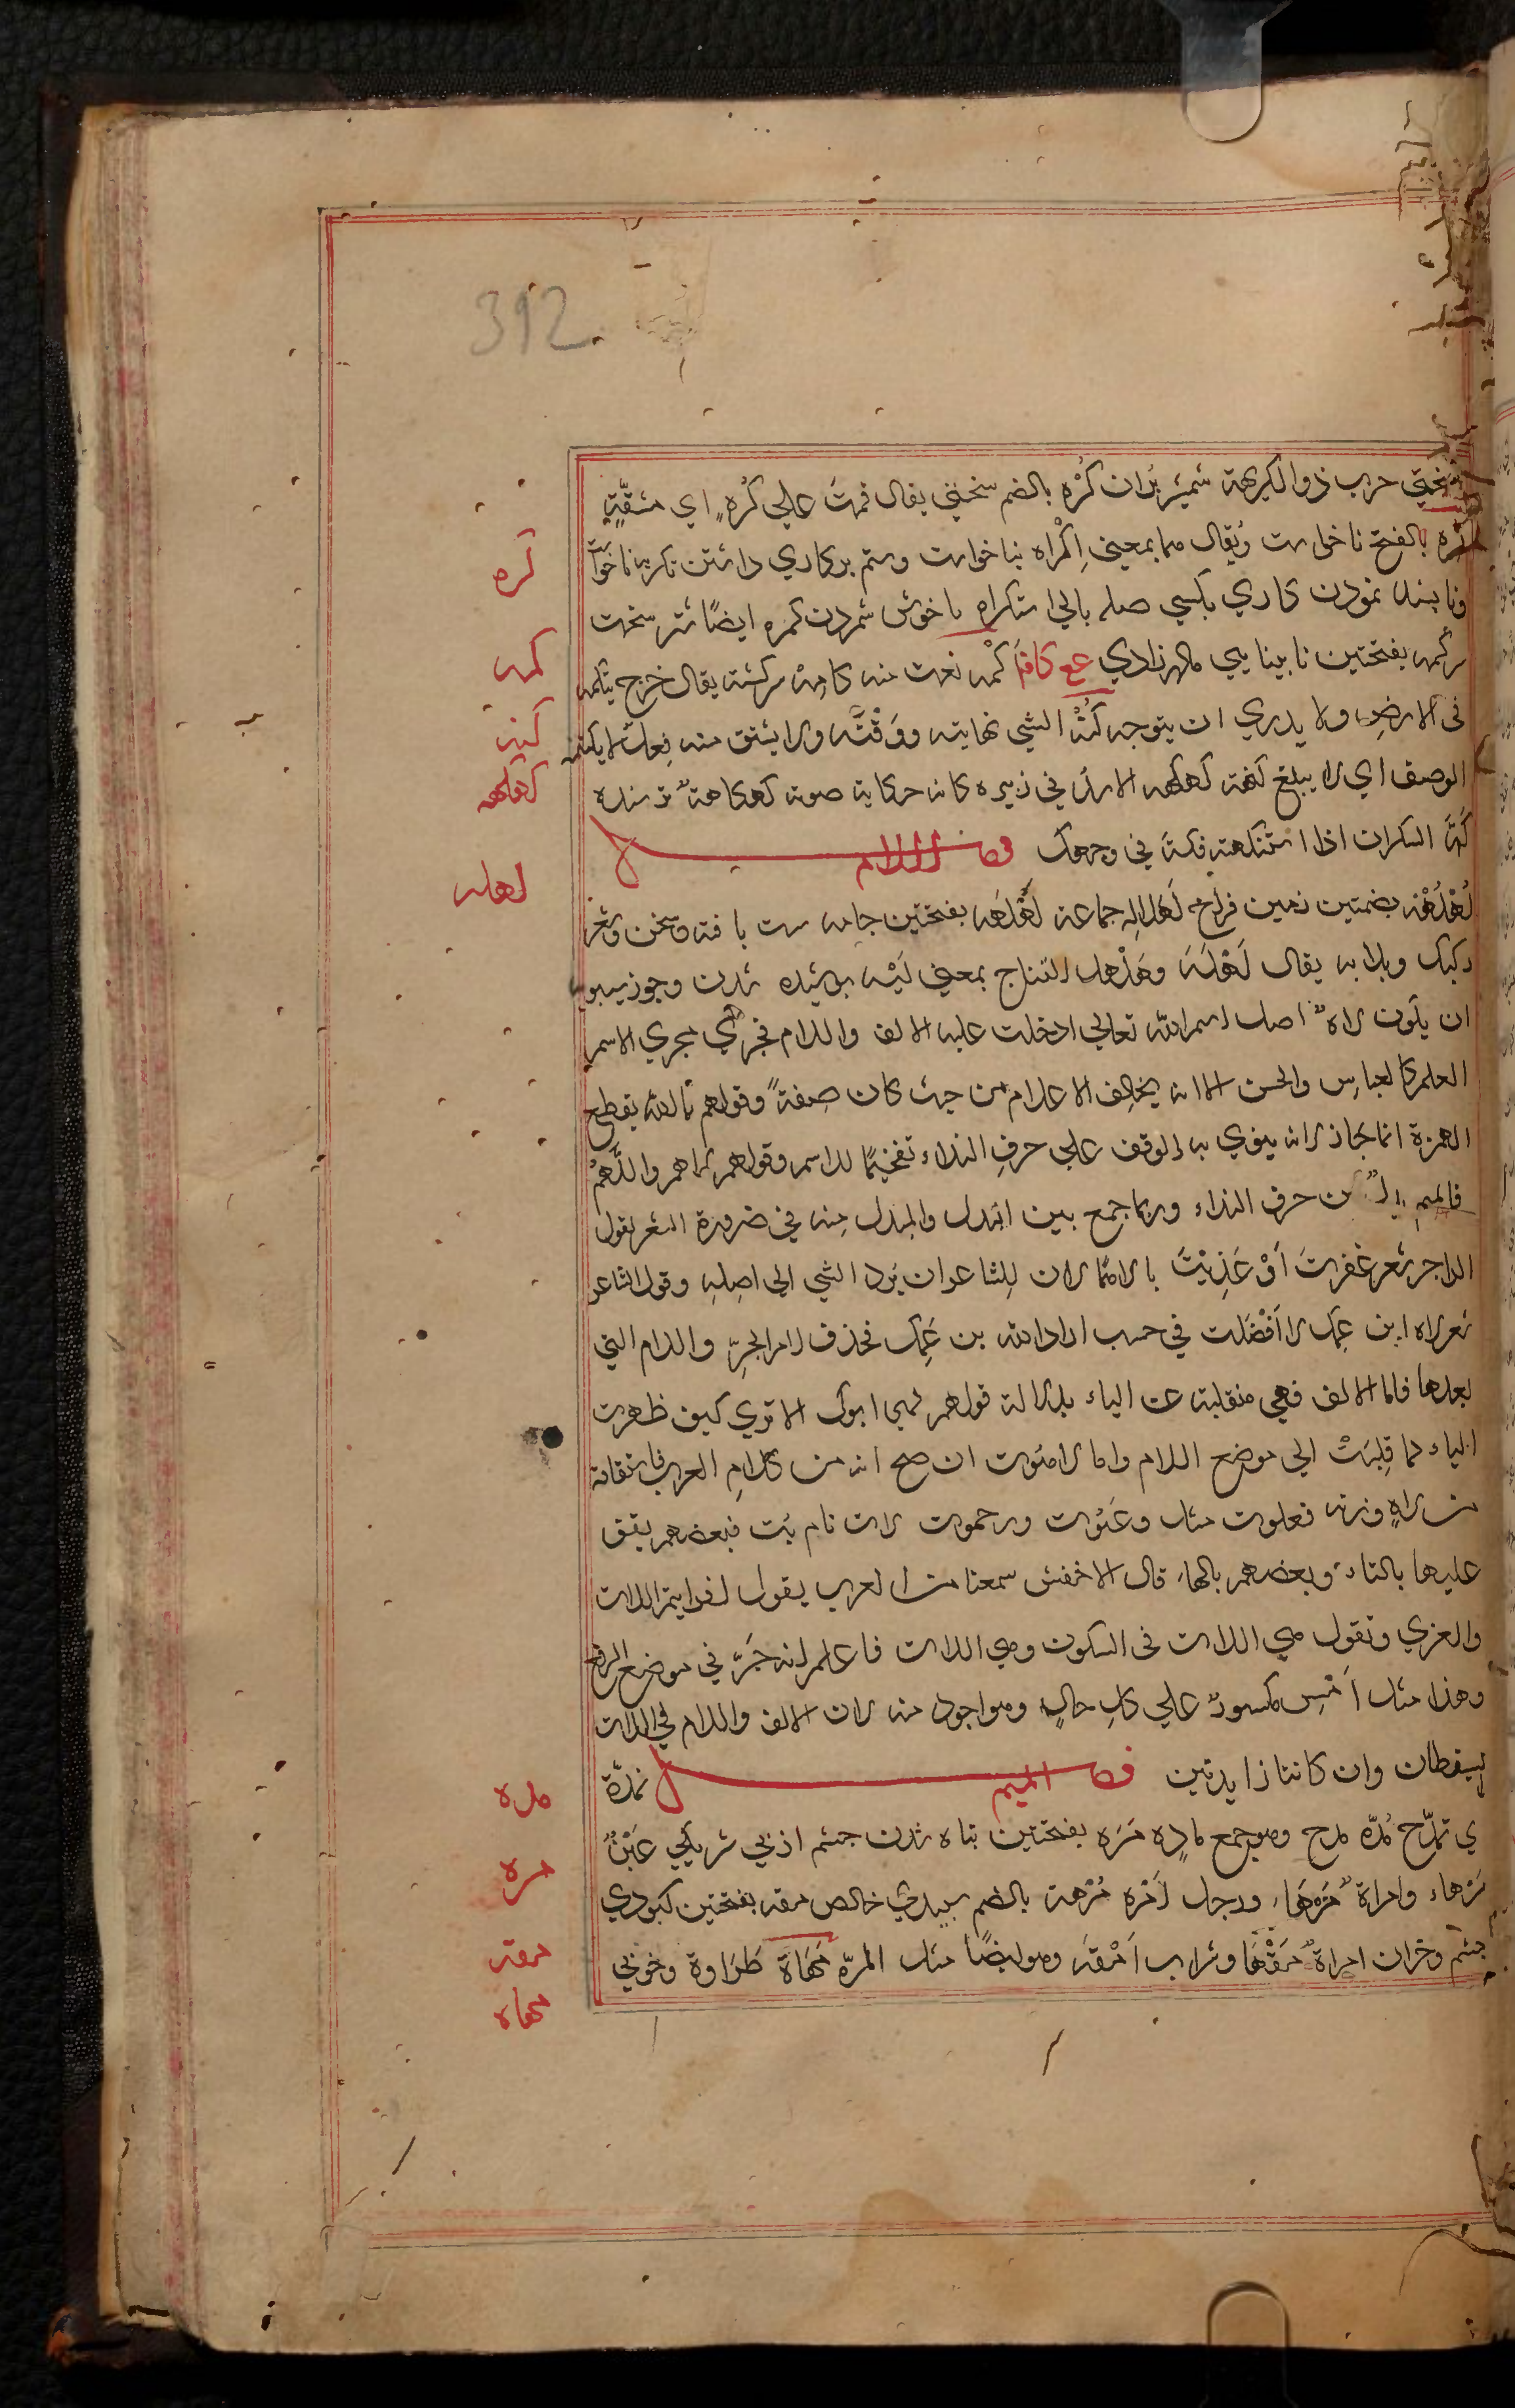 392
سختي حرب ذو الكريهة شمشير بران كُرْه بالضم سختي يقال قمت علي كُره اي مشقّةٍ
كره بالفتح ناخواست ويُقال هما بمعني اِكْراه بناخواست وستم بركاري داشتن تكريه ناخواست
وناپسند نمودن كاري بكسي صلہ بالي استكراه ناخوش شمردن كمره ايضًا شتر سخت
سر كمه بفتحتين نابينايي مادرزادي عع كافَا كْمه نعت منه كامِه سركشته يقال خرج يتكمه
في الارض ولا يدري ان يتوجه كُنْهُ الشي نهايته ووَقْتُه ولا يشتق منه فِعلٌ لا يكتنهه
الوصف اي لا يبلغ كنهه كهكه الاسد في زئيره كانه حكاية صوته كهكاهة ترسنده
كَهَّ السكران اذا استنكهته فكهَ في وجهك فصل اللام
لُهْلُهْه بضمتين زمين فراخ لهاله جماعة لَهْلَهه بفتحتين جامه سست بافته وسخن وشعر
ركيك وبلابه يقال لَهْلَهَ وهَلْهل النساج بمعني لَيْه پوشيده شدن وجوز سيبويه
ان يكون لاهٌ اصل اسم الله تعالي ادخلت عليه الالف واللام فجري مجري الاسم
العلم كالعباس والحسن الا انه يخالف الاعلام من حيث كان صفةً وقولهم يا الله بقطع
الهمزة انما جاز لانه ينوي به الوقف علي حرف النداء تفخيمًا للاسم وقولهم لاهم واللّهمّ
فالميم بدلٌ من حرف النداء وربما جمع بين البدل والمبدل منه في ضرورة الشعر بقول
الراجز شعر غفرتَ اَوْ عَذبْتَ يا اللهما لان للشاعر ان يرد الشي الي اصلِهِ وقول الشاعر
شعر لاه ابن عمك لا اَفْضَلت في حسب اراد لله بن عَمِك فحذف لام الجرِّ واللام التي
بعدها فاما الالف فهي منقلبة عن الياء بدلالة قولهم لهي ابوك الا تري كيف ظهرت
الياء لما قلِبَتْ الي موضع اللام واما لاهُوت ان صح انه من كلام العرب فاشتقاقه
من لاهٍ وزنه فعلوت مثل رغَبُوت ورحموت لات نام بت فبعضهم يقف
عليها بالتاء وبعضهم بالهاء قال الاخفش سمعنا من العرب يقول افرايتم اللات
والعزي وتقول هي اللات في السكون وهي اللات فاعلم انه جَرَّ في موضع الرفع
وهذا مثل اَمْسِ مكسورٌ علي كل حالٍ وهو اجود منه لان الالف واللام في اللات
ليسقطان وان كانتا زايدتين فصل الميم تمدّه
ي تمدّح مُدّه مدح وهو جمع مادِه مَرَه بفتحتين تباه شدن چشم از بي سرمكي عَيْنٌ
مَرْهاء وامراة مَرْهَاء ورجل اَمْره مُرْهة بالضم سپيدي خالص مقه بفتحتين كبودي
چشم وخران امراة مَقْهَا وشراب اَمْقه وهو ايضًا مثل المرّه مَهَاة طَرَاوة وخوبي
كره
كمه
كنه
كهكهه
لهله
مده
مره
مقه
مهاه